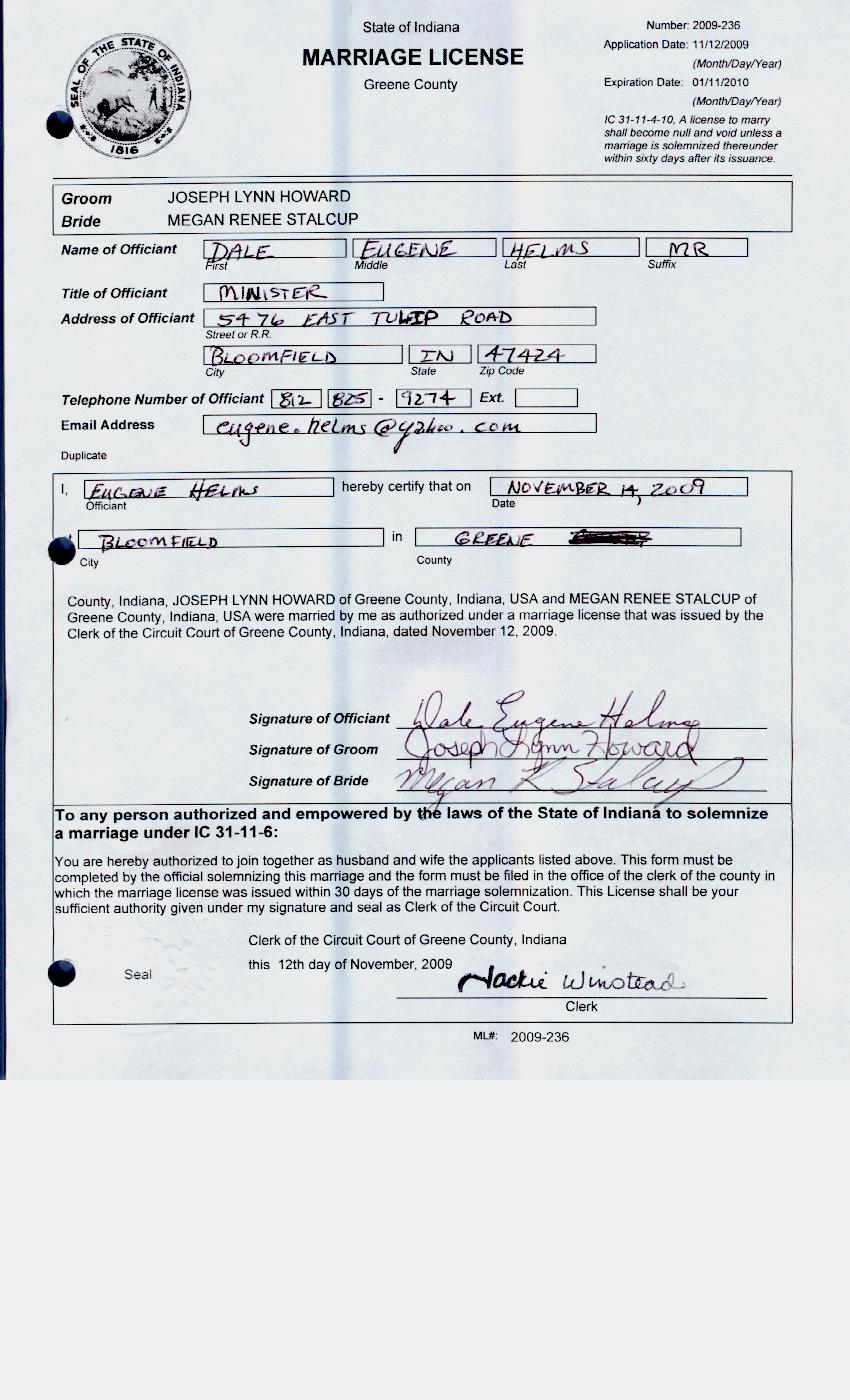 State of Indiana
MARRIAGE LICENSE
Greene County
SEAL OF THE STATE OF INDIANA
1816
Number: 2009-236
Application Date: 11/12/2009
(Month/Day/Year)
Expiration Date: 01/11/2010
(Month/Day/Year)
IC 31-11-4-10, A license to marry
shall become null and void unless a
marriage is solemnized thereunder
within sixty days after its issuance.
Groom JOSEPH LYNN HOWARD
Bride MEGAN RENEE STALCUP
Name of Officiant DALE EUGENE HELMS MR
First Middle Last Suffix
Title of Officiant MINISTER
Address of Officiant 5476 EAST TULIP ROAD
Street or R.R.
BLOOMFIELD IN 47424
City State Zip Code
Telephone Number of Officiant 812 825 - 9274 Ext.
Email Address eugene.helms@yahoo.com
Duplicate
I, EUGENE HELMS hereby certify that on NOVEMBER 14, 2009
Officiant Date
BLOOMFIELD in GREENE
City County
County, Indiana, JOSEPH LYNN HOWARD of Greene County, Indiana, USA and MEGAN RENEE STALCUP of
Greene County, Indiana, USA were married by me as authorized under a marriage license that was issued by the
Clerk of the Circuit Court of Greene County, Indiana, dated November 12, 2009.
Signature of Officiant Dale Eugene Helms
Signature of Groom Joseph Lynn Howard
Signature of Bride Megan R Stalcup
To any person authorized and empowered by the laws of the State of Indiana to solemnize
a marriage under IC 31-11-6:
You are hereby authorized to join together as husband and wife the applicants listed above. This form must be
completed by the official solemnizing this marriage and the form must be filed in the office of the clerk of the county in
which the marriage license was issued within 30 days of the marriage solemnization. This License shall be your
sufficient authority given under my signature and seal as Clerk of the Circuit Court.
Clerk of the Circuit Court of Greene County, Indiana
Seal this 12th day of November, 2009 Jackie Winstead
Clerk
ML#: 2009-236